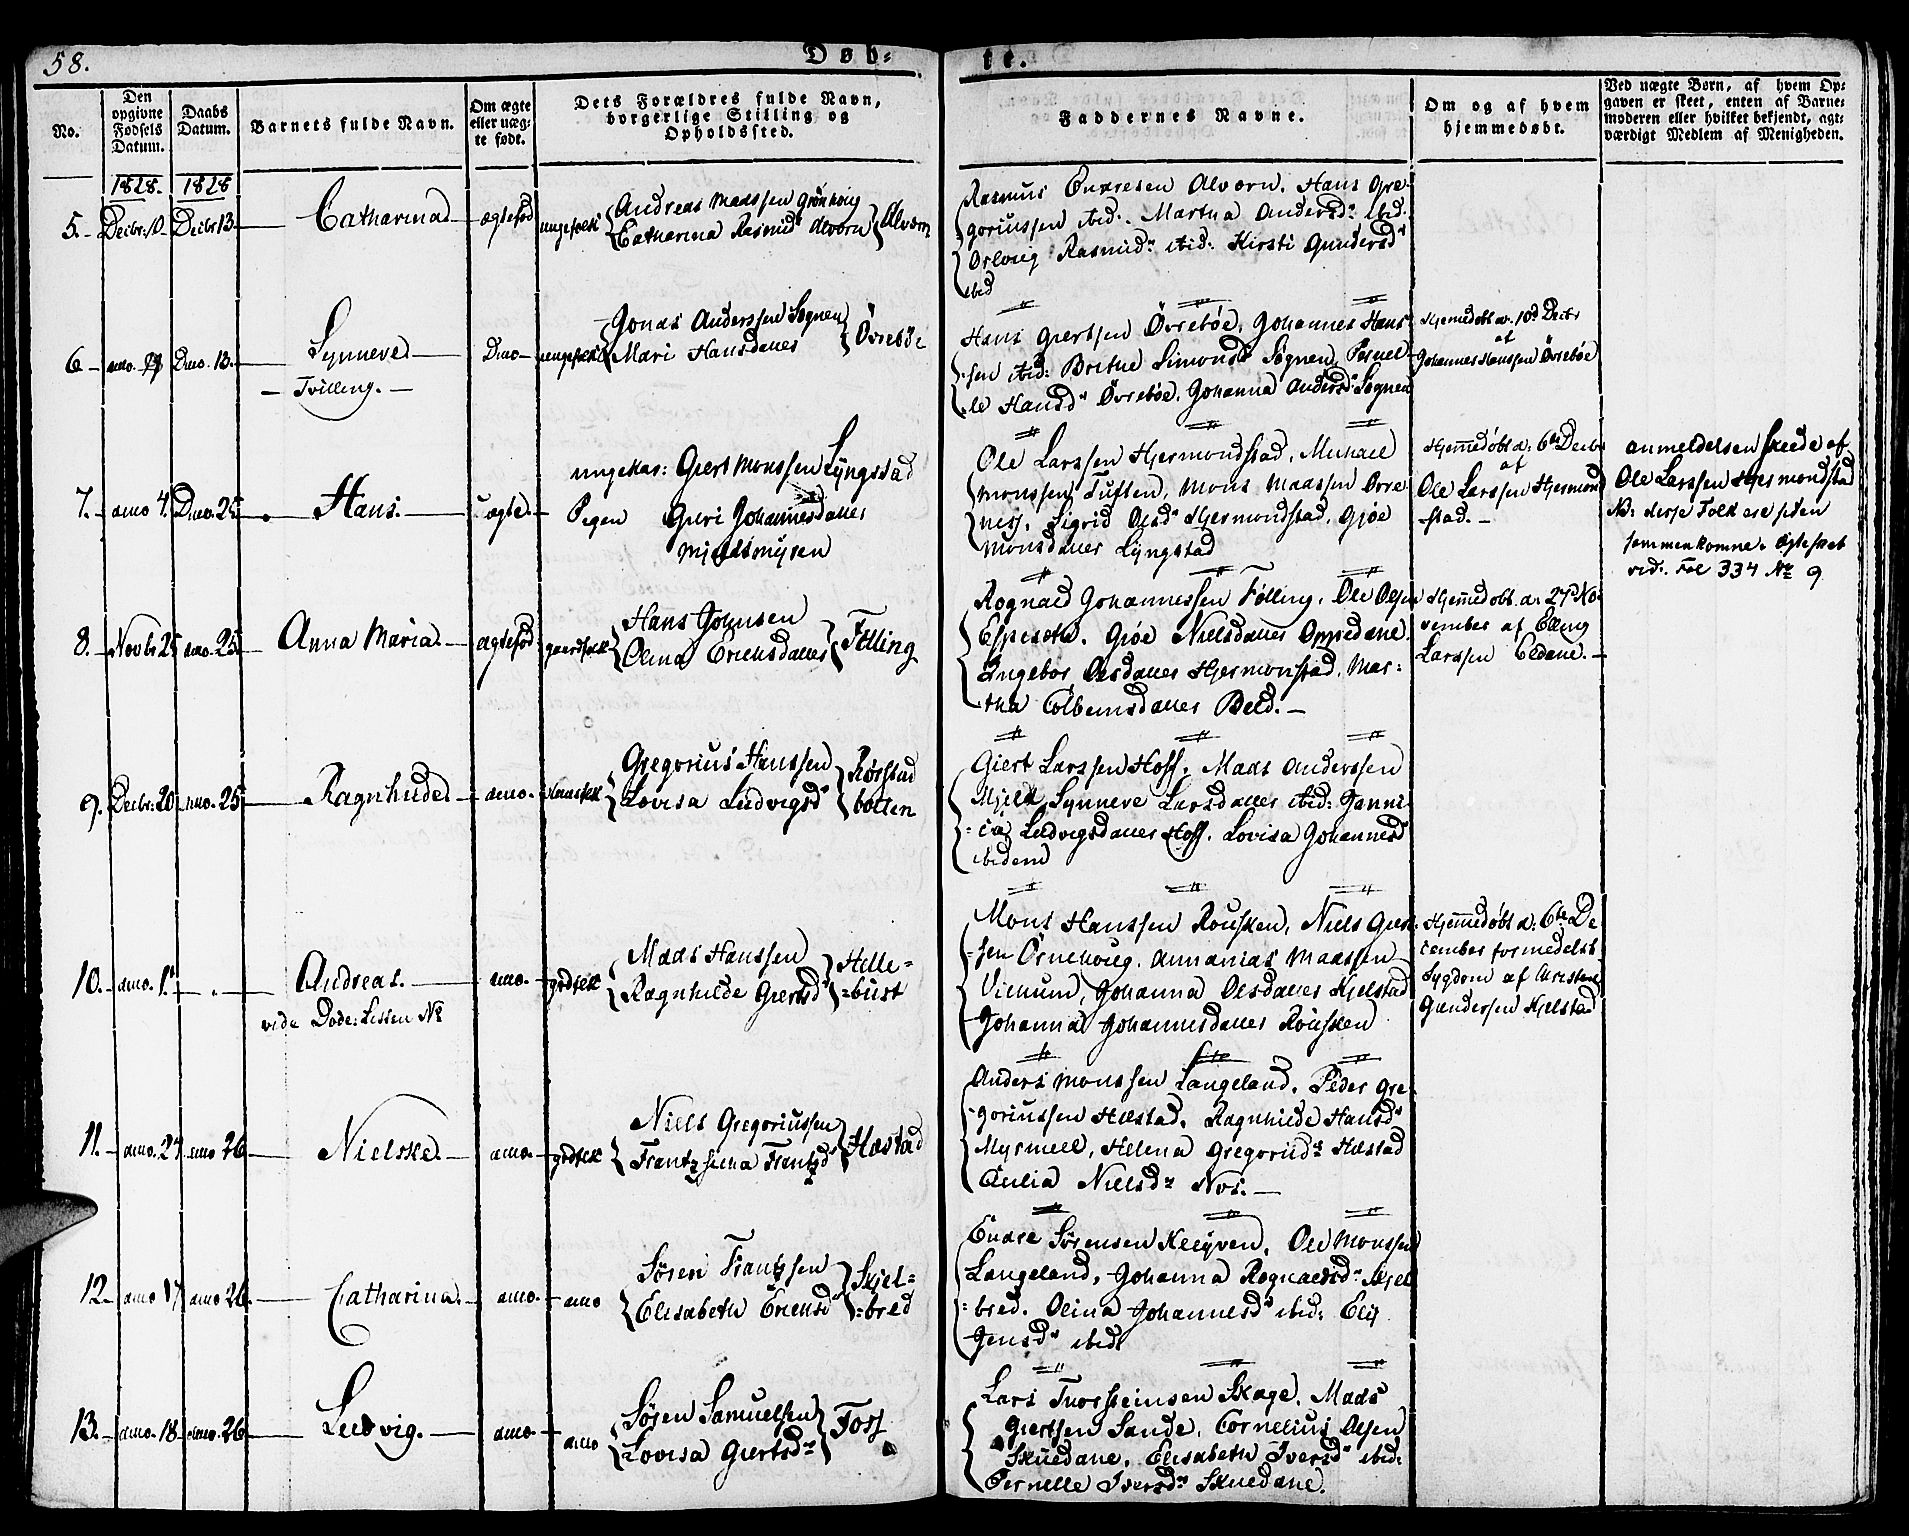 58.
Døb-
te.
No.
Den opgivne Fødsels Datum.
Daabs Datum.
Barnets fulde Navn.
Om ægte eller uæg-
te født.
Dets Forældres fulde Navn,
borgerlige Stilling og
Opholdssted.
Faddernes Navne.
Om og af hvem
hjemmedøbt.
Ved uægte Børn, af hvem Op-
gaven er skeet, enten af Barne-
moderen eller hvilket bekjendt, agt-
værdigt Medlem af Menigheden.
1828. 1828
5. Decbr: 10 Decbr 13. Catharina ægtefød ungefolk
Andreas Maassen Grønhvig
Catharina Rasmusd Alvorn
Alvorn
Rasmus Endresen Alvorn, Hans Gre-
goriussen ibid:. Martha Andersdr ibid.
Rasmusdr ibid: Kirsti Gundersdr
ibid
6 dmo Dmo. 13. Synneve
Tvilling.
Dmo ungefolk
Jonas Anderssen Sognen
Mari Hansdatter
Øvrebøe
Hans Giertsen Øvrebøe, Johannes Hans-
sen ibid: Brithe Simonsdr Sognen, Pernel-
le Hansdr Øvrebøe, Johanna Andersdr Sognen
Hjemmedøbt d. 10d Decbr
af
Johannes Hanssen Øvrebøe
7. dmo 4. Dmo. 25 Hans.
Uægte.
ungekar: Giert Monssen Lyngstad
Pigen Guri Johannesdatter
Mjelsmyren
Ole Larssen Hjermondstad, Michael
Monssen Tuften, Mons Maassen Øvre
næss. Sigrid Olsdr Hjermondstad, Gjøe
Monsdatter Lyngstad
Hjemmedøbt d: 6te Decbr
af
Ole Larssen Hjermond
stad.
anmeldelsen skeede af
Ole Larssen Hjermondstad
NB: disse Folk ere siden
sammenkomne i Ægteskab
vid:. Fol 334 No 9
8. Novbr 25 dmo. 25. Anna Maria. ægtefød gaardfolk
Hans Johnsen
Olina Erichsdatter
Følling
Rognald Johannessen Følling, Ole Olsen
Espeseth, Gjøe Nielsdatter Oppedahl,
Ingebor Olsdatter Hjermonstad, Mar-
tha Colbensdatter Beld.
Hjemmedøbt. d. 27d No-
vember af Elling
Larssen Eldahl.
9. Decbr: 20 dmo. 25 Ragnhilde dmo. huusfolk
Gregorius Hanssen
Lovisa Ludvigsdr
Rørstad
botten
Giert Larssen Hoff, Mads Anderssen
Mjell, Synneve Larsdatter ibid: Janni-
ca Ludvigsdatter Hoff. Lovisa Johannesdr
ibidem
10. dmo. 1. Andreas.
vide Døde: Listen No
dmo. grdfolk
Mads Hanssen
Ragnhilde Giertsdr
Hille-
bust
Mons Hanssen Rousken, Niels Giert-
sen Ørnehoug, Annanias Maassen
Vilnum, Johanna Olsdatter Hjelstad
Johanna Johannesdatter Rousken
Hjemmedøbt d: 6te De
cember formedelst
Sygdom af Christen
Gundersen Hjelstad
11. dmo. 27 dmo 26 Nielske. dmo. grdfolk
Niels Gregoriussen
Frantzsina Frantzdr
Hæstad
Anders Monssen Langeland, Peder Gre-
goriussen Hæstad, Ragnhilde Hansdr
Myrmell, Helena Gregoriidr Hæstad
Cicilia Nielsdr Nos.
12 dmo 17 dmo 26. Catharina. dmo. dmo
Søren Frantzsen
Elisabeth Ericksdr
Skjel-
bred
Endre Sørensen Kleyven, Ole Monssen
Langeland, Johanna Rognaldsdr Skjel
bred. Olina Johannesdr ibid: Elis
Jensdr ibid:
13. dmo. 18. dmo. 26 Ludvig. dmo. dmo
Søren Samuelsen
Lovisa Giertsdr
Foss
Lars Thorsteinsen Skage, Mads
Giertsen Sande, Cornelius Olsen
Skuedahl, Elisabeth Iversdr ibid:
Pernelle Iversdr Skuedahl.